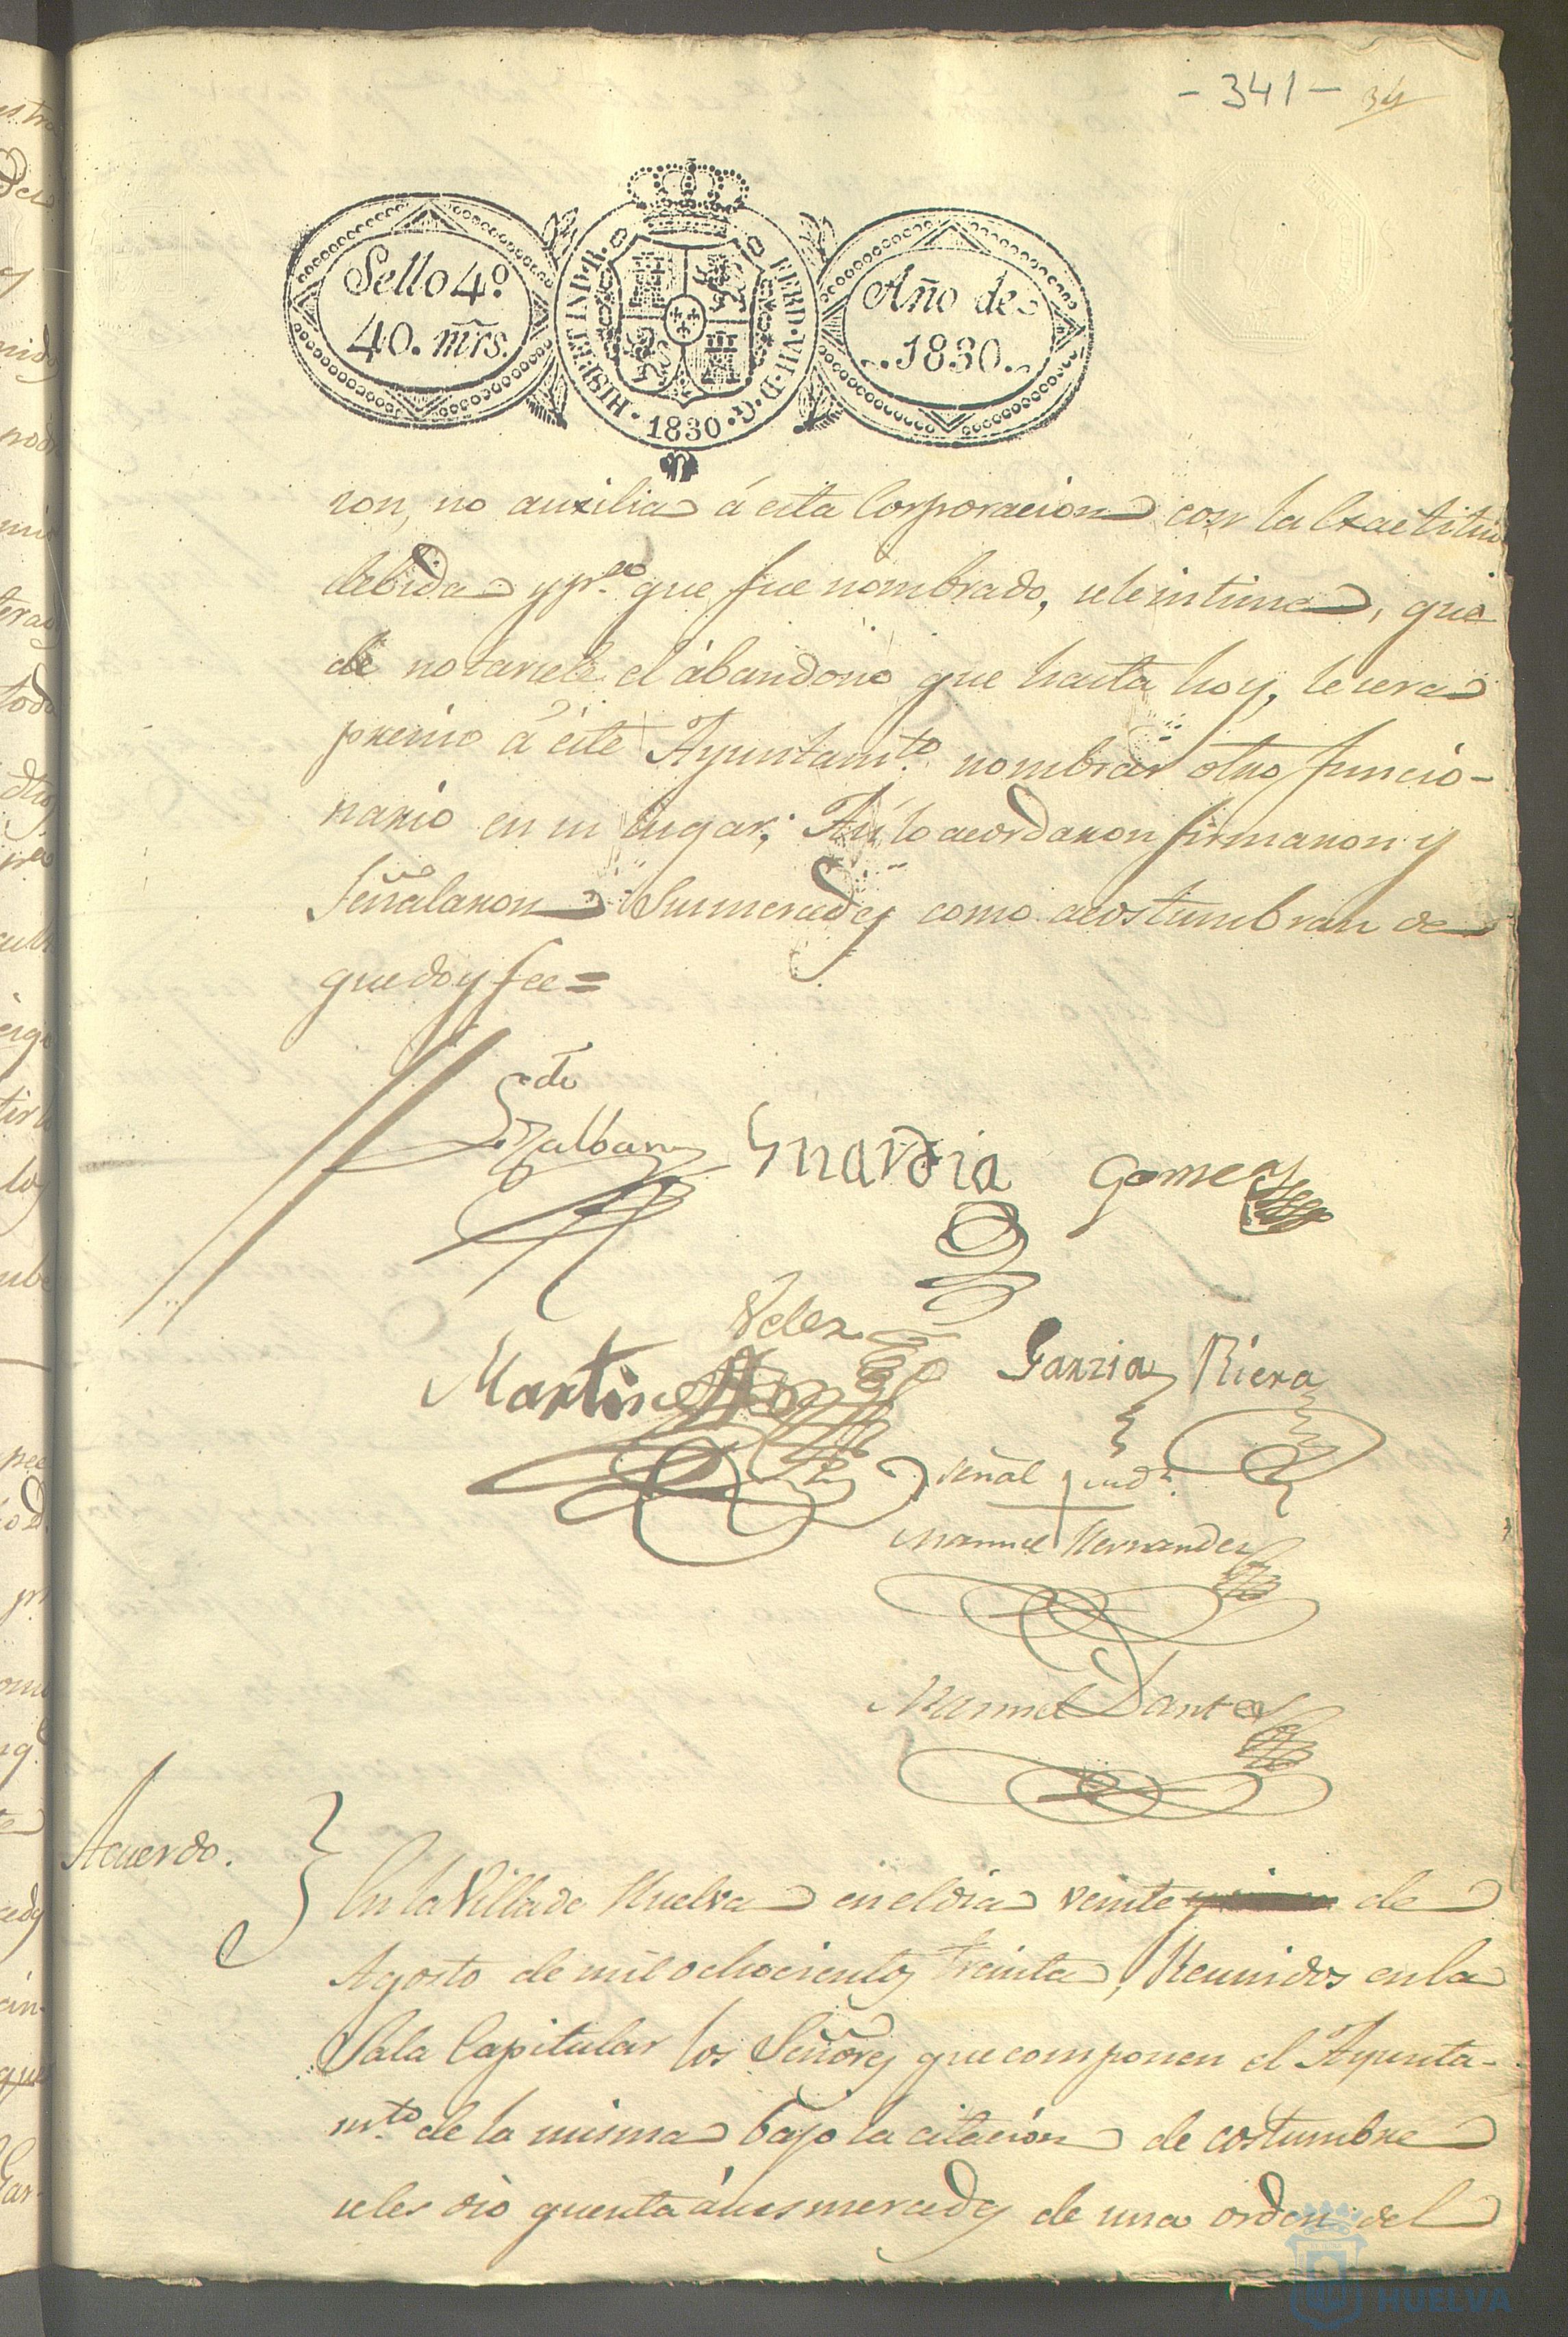 - 341 - 34
Sello 4º.
40. mrs.
HISP. ET IND. R. FERD. VII. D. G.
1830
Año de
1830.
ron, no auxilia á esta Corporacion con la Exactitud
debida y pª. que fue nombrado, sele intima, que
de notarsele el abandono que hasta hoy, le sera
presiso á este Ayuntamto. nombrar otro funcio-
nario en su lugar; Asi lo acordaron firmaron y
Señalaron Sus mercedes como acostumbran de
que doy fee =
Galban Guardia Gomez
Velez
Martinez Garzia Riera
señal Sindº.
Manuel Hernandez
Manuel Dante
Acuerdo.
En la Villa de Huelva en el dia veinte de
Agosto de mil ochocientos treinta, Reunidos en la
Sala Capitular los Señores que componen el Ayunta-
mto. de la misma bajo la citacion de costumbre
seles dio quenta á sus mercedes de una orden del
HUELVA